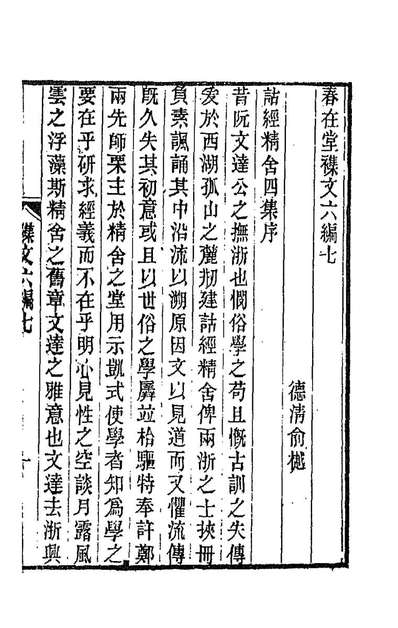 春在堂襍文六編七
德清俞樾
詁經精舍四集序
昔阮文達公之撫浙也憫俗學之苟且慨古訓之失傳
爰於西湖孤山之麓刱建詁經精舍俾兩浙之士挾冊
負素諷誦其中沿流以溯原因文以見道而又懼流傳
旣久失其初意或且以世俗之學羼竝枱驅特奉許鄭
兩先師栗主於精舍之堂用示凱式使學者知爲學之
要在乎研求經義而不在乎明心見性之空談月露風
雲之浮藻斯精舍之舊章文達之雅意也文達去浙興
襍文六編七